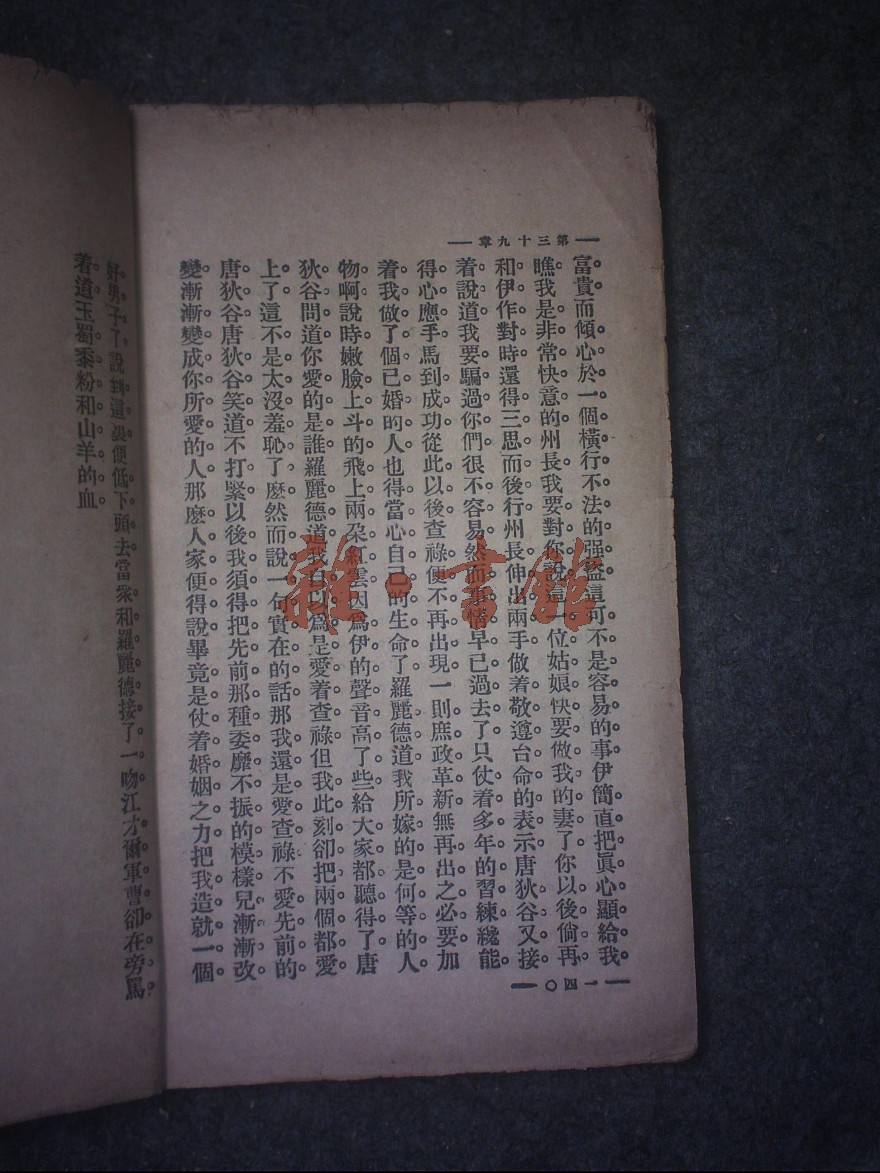 第三十九章
富貴而傾心於一個橫行不法的强盜這可不是容易的事伊簡直把眞心顯給我
瞧我是非常快意的州長我要對你說這一位姑娘快要做我的妻了你以後倘再
和伊作對時還得三思而後行州長伸出兩手做着敬遵台命的表示唐狄谷又接
着說道我要騙過你們很不容易然而事情早已過去了只仗着多年的習練纔能
得心應手馬到成功從此以後查祿便不再出現一則庶政革新無再出之必要加
着我做了個已婚的人也得當心自己的生命了羅麗德道我所嫁的是何等的人
物啊說時嫩臉上斗的飛上兩朶紅雲因爲伊的聲音高了些給大家都聽得了唐
狄谷問道你愛的是誰羅麗德道我自以爲是愛着查祿但我此刻卻把兩個都愛
上了這不是太沒羞恥了麽然而說一句實在的話那我還是愛查祿不愛先前的
唐狄谷唐狄谷笑道不打緊以後我須得把先前那種委靡不振的模樣兒漸漸改
變漸漸變成你所愛的人那麽人家便得說畢竟是仗着婚姻之力把我造就一個
一四〇
好男子了說到這裏便低下頭去當衆和羅麗德接了一吻江才爾軍曹卻在旁罵
着道玉蜀黍粉和山羊的血
雜·書館